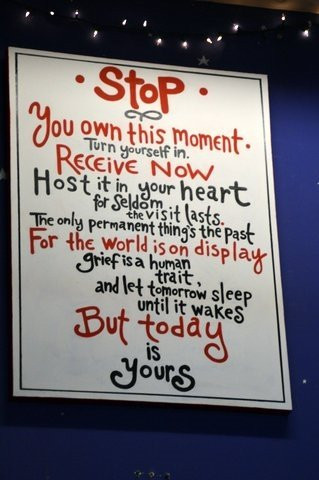 • STOP •
You own this moment.
Turn yourself in.
RECEIVE NOW
Host it in your heart
for Seldom
the visit lasts.
The only permanent thing's the past
For the world is on display
grief is a human
trait,
and let tomorrow sleep
until it wakes
But today
is
yours